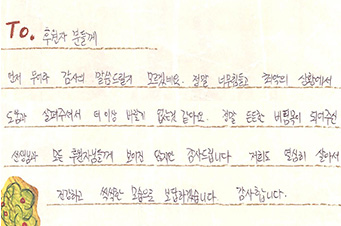 To. 후원자 분들께
먼저 무어라 감사의 말씀드릴지 모르겠네요. 정말 너무힘들고 최악의 상황에서
도움과 살펴주셔서 더 이상 바랄게 없는것 같아요. 정말 든든한 버팀목이 되어주신
선생님과 모든 후원자님들께 보이진 않지만 감사드립니다. 저희도 열심히 살아서
건강하고 씩씩한 모습으로 보답하겠습니다. 감사합니다.